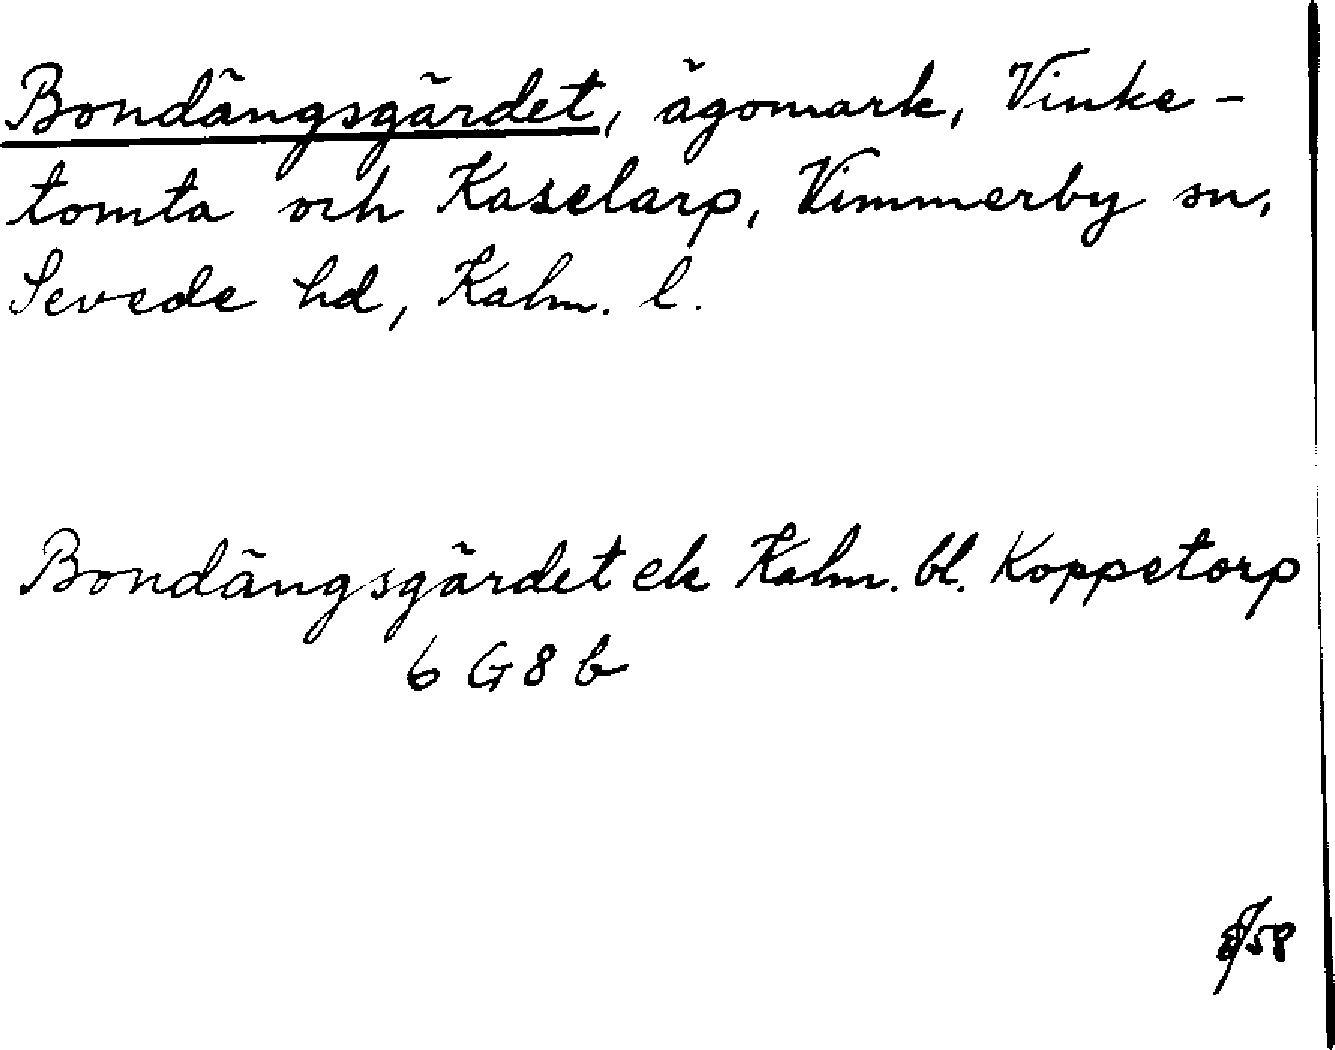 Bondängsgärdet, ägomark, Vinke-
tomta och Kaselarp, Vimmerby sn,
Sevede hd, Kalm. l.
Bondängsgärdet ek Kalm. bl. Koppetorp
6 G 8 b
8/58